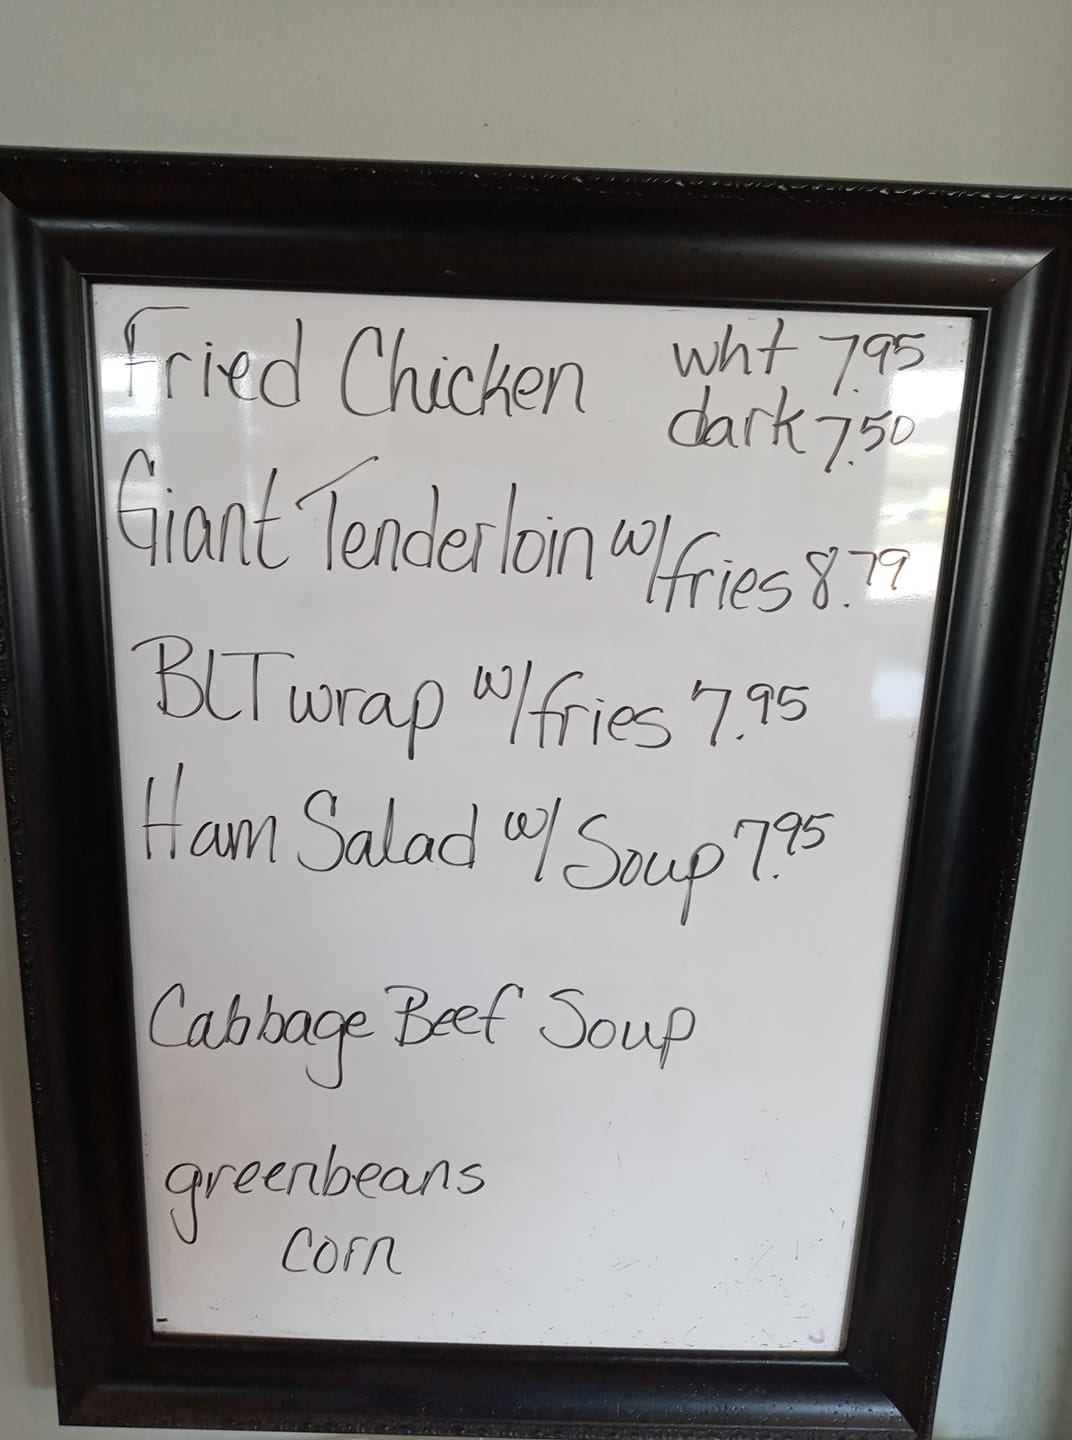 Fried Chicken wht 7.95
dark 7.50
Giant Tenderloin w/fries 8.79
BLT wrap w/fries 7.95
Ham Salad w/ Soup 7.95
Cabbage Beef Soup
greenbeans
corn